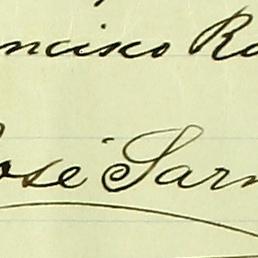 ncisco Ra
osé Sarm